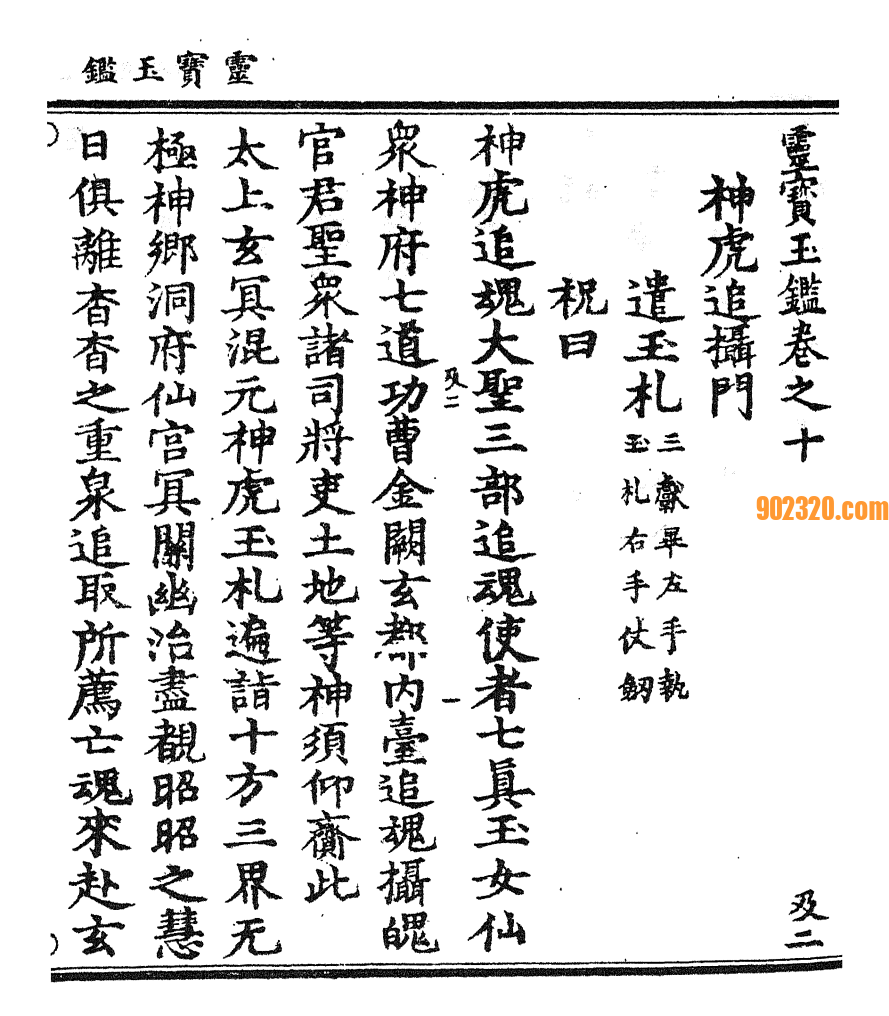 靈寶玉鑑
靈寶玉鑑卷之十 及二
神虎追攝門
遣玉札 三獻畢左手執
玉札右手仗劒
祝曰
神虎追魂大聖三部追魂使者七眞玉女仙
及二 一
衆神府七道功曹金闕玄内臺追魂攝魄
官君聖衆諸司將吏土地等神須仰齎此
太上玄冥混元神虎玉札遍詣十方三界无
極神鄉洞府仙宫冥關幽治盡覩昭昭之慧
日俱離杳杳之重泉追取所薦亡魂來赴玄
902320.com